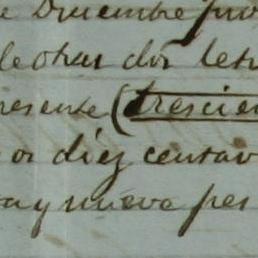 e Diciembre pró
de otras dos letr
presente (trescien
os diez centav
ta y nueve pes